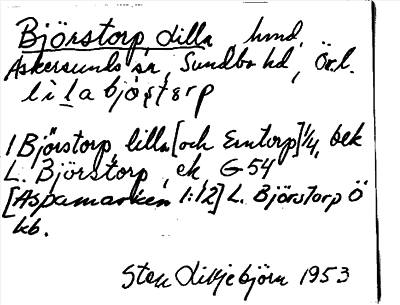 Björstorp, Lilla hmd,
Askersunds sn, Sundbo hd, Ör.l.
lila bjọstərp
1 Björstorp, lilla [och Emtorp] 1/4, bek
L. Björstorp, ek, G54
[Aspamarken 1:12] L. Björstorp Ö
kb.
Sten Liljebjörn 1953